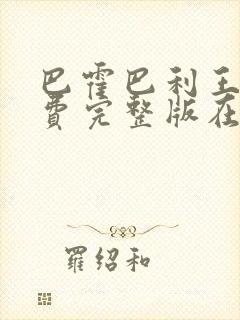 巴霍巴利王
费完整版在
羅绍和